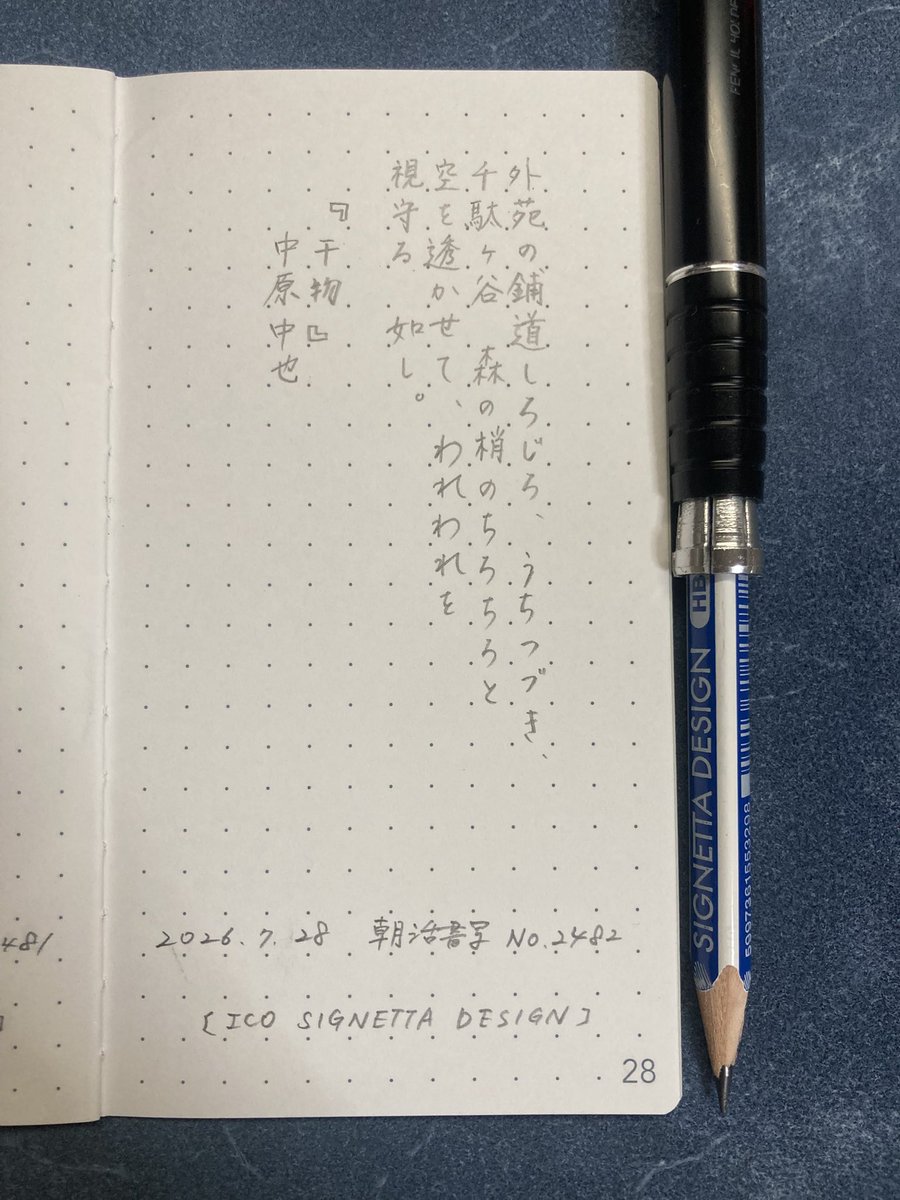 外苑の鋪道しろじろ、うちつづき、
千駄ヶ谷 森の梢のちろちろと
空を透かせて、われわれを
視守る 如し。
『干物』
中原中也
2026.7.28 朝活書写 No.2482
[ICO SIGNETTA DESIGN]
28
481
SIGNETTA DESIGN HB
5997361553298